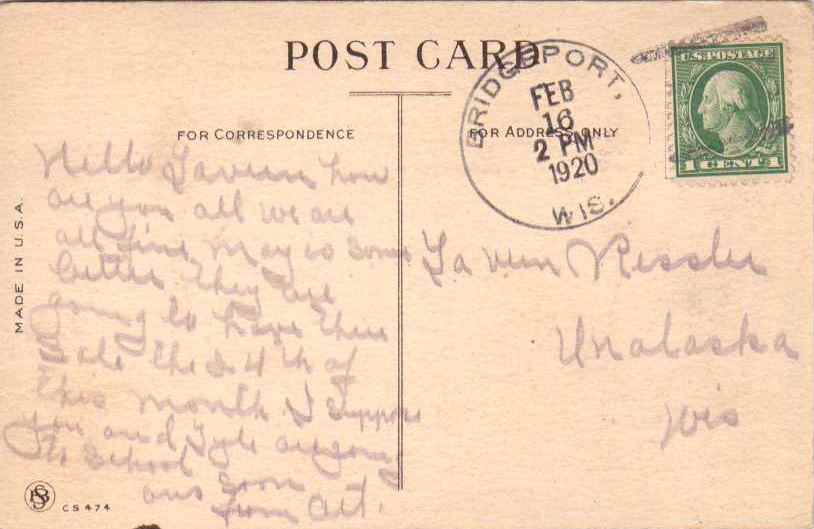 POST CARD
FOR CORRESPONDENCE
FOR ADDRESS ONLY
BRIDGEPORT,
FEB
16
2 PM
1920
WIS.
U.S. POSTAGE
1 CENT 1
MADE IN U.S.A.
Hello Lavern how
are you all we are
all fine May is some
better they are
going to have their
Sale the 24 th of
this month I suppose
you and Lyle are going
to School
ans soon
from Art.
Lavern Ressler
Unalaska
Wis
SB
CS 474